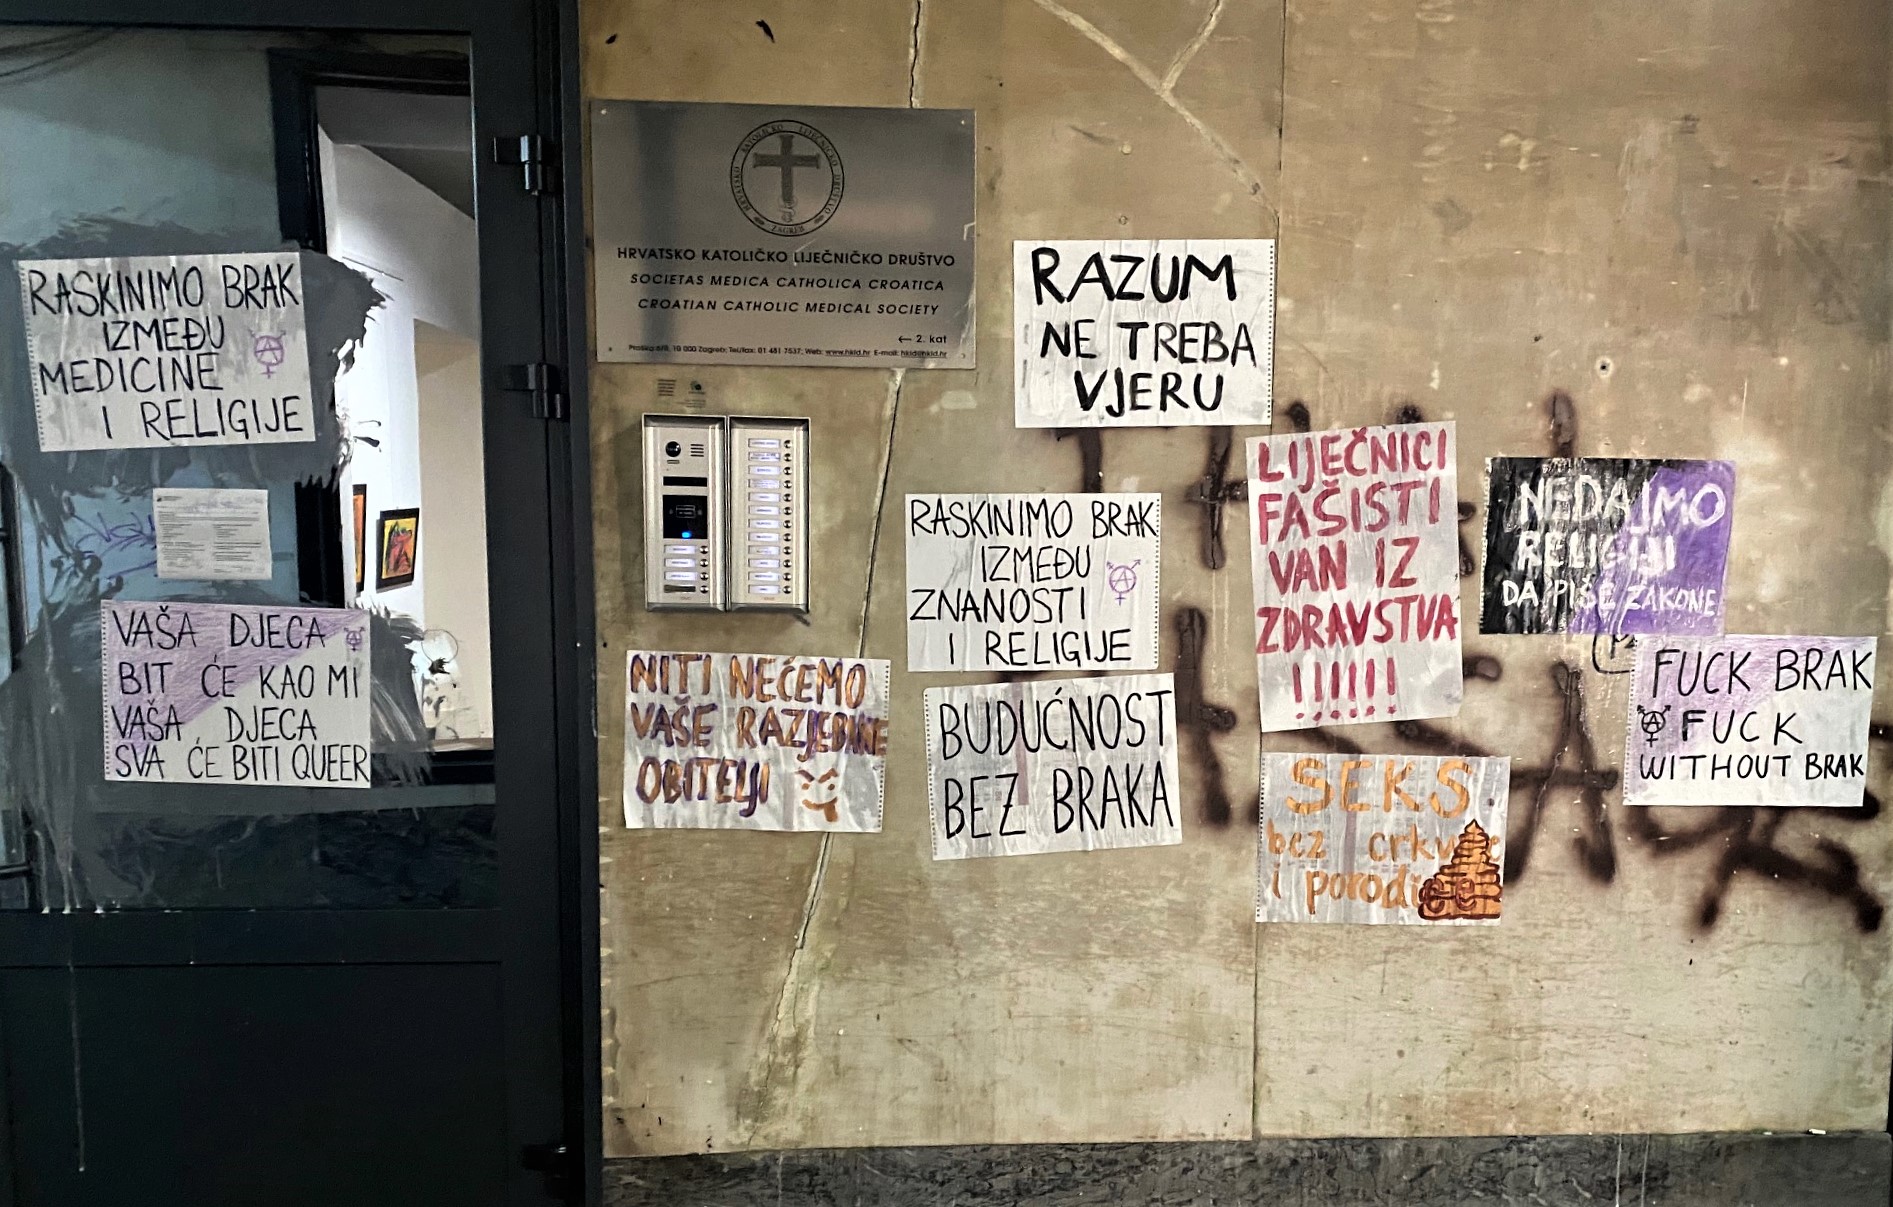 RASKINIMO BRAK
IZMEĐU
MEDICINE
I RELIGIJE
VAŠA DJECA
BIT ĆE KAO MI
VAŠA DJECA
SVA ĆE BITI QUEER
HRVATSKO KATOLIČKO LIJEČNIČKO DRUŠTVO
ZAGREB
HRVATSKO KATOLIČKO LIJEČNIČKO DRUŠTVO
SOCIETAS MEDICA CATHOLICA CROATICA
CROATIAN CATHOLIC MEDICAL SOCIETY
← 2. kat
10 000 Zagreb; Tel/fax: 01 481 7537; Web: www.hkld.hr E-mail: hkld@hkld.hr
RAZUM
NE TREBA
VJERU
RASKINIMO BRAK
IZMEĐU
ZNANOSTI
I RELIGIJE
NITI NEĆEMO
VAŠE RAZJEBINE
OBITELJI
BUDUĆNOST
BEZ BRAKA
LIJEČNICI
FAŠISTI
VAN IZ
ZDRAVSTVA
!!!!!!
SEKS
bez crkve
i porodice
NEDAJMO
RELIGIJI
DA PIŠE ZAKONE
FUCK BRAK
FUCK
WITHOUT BRAK